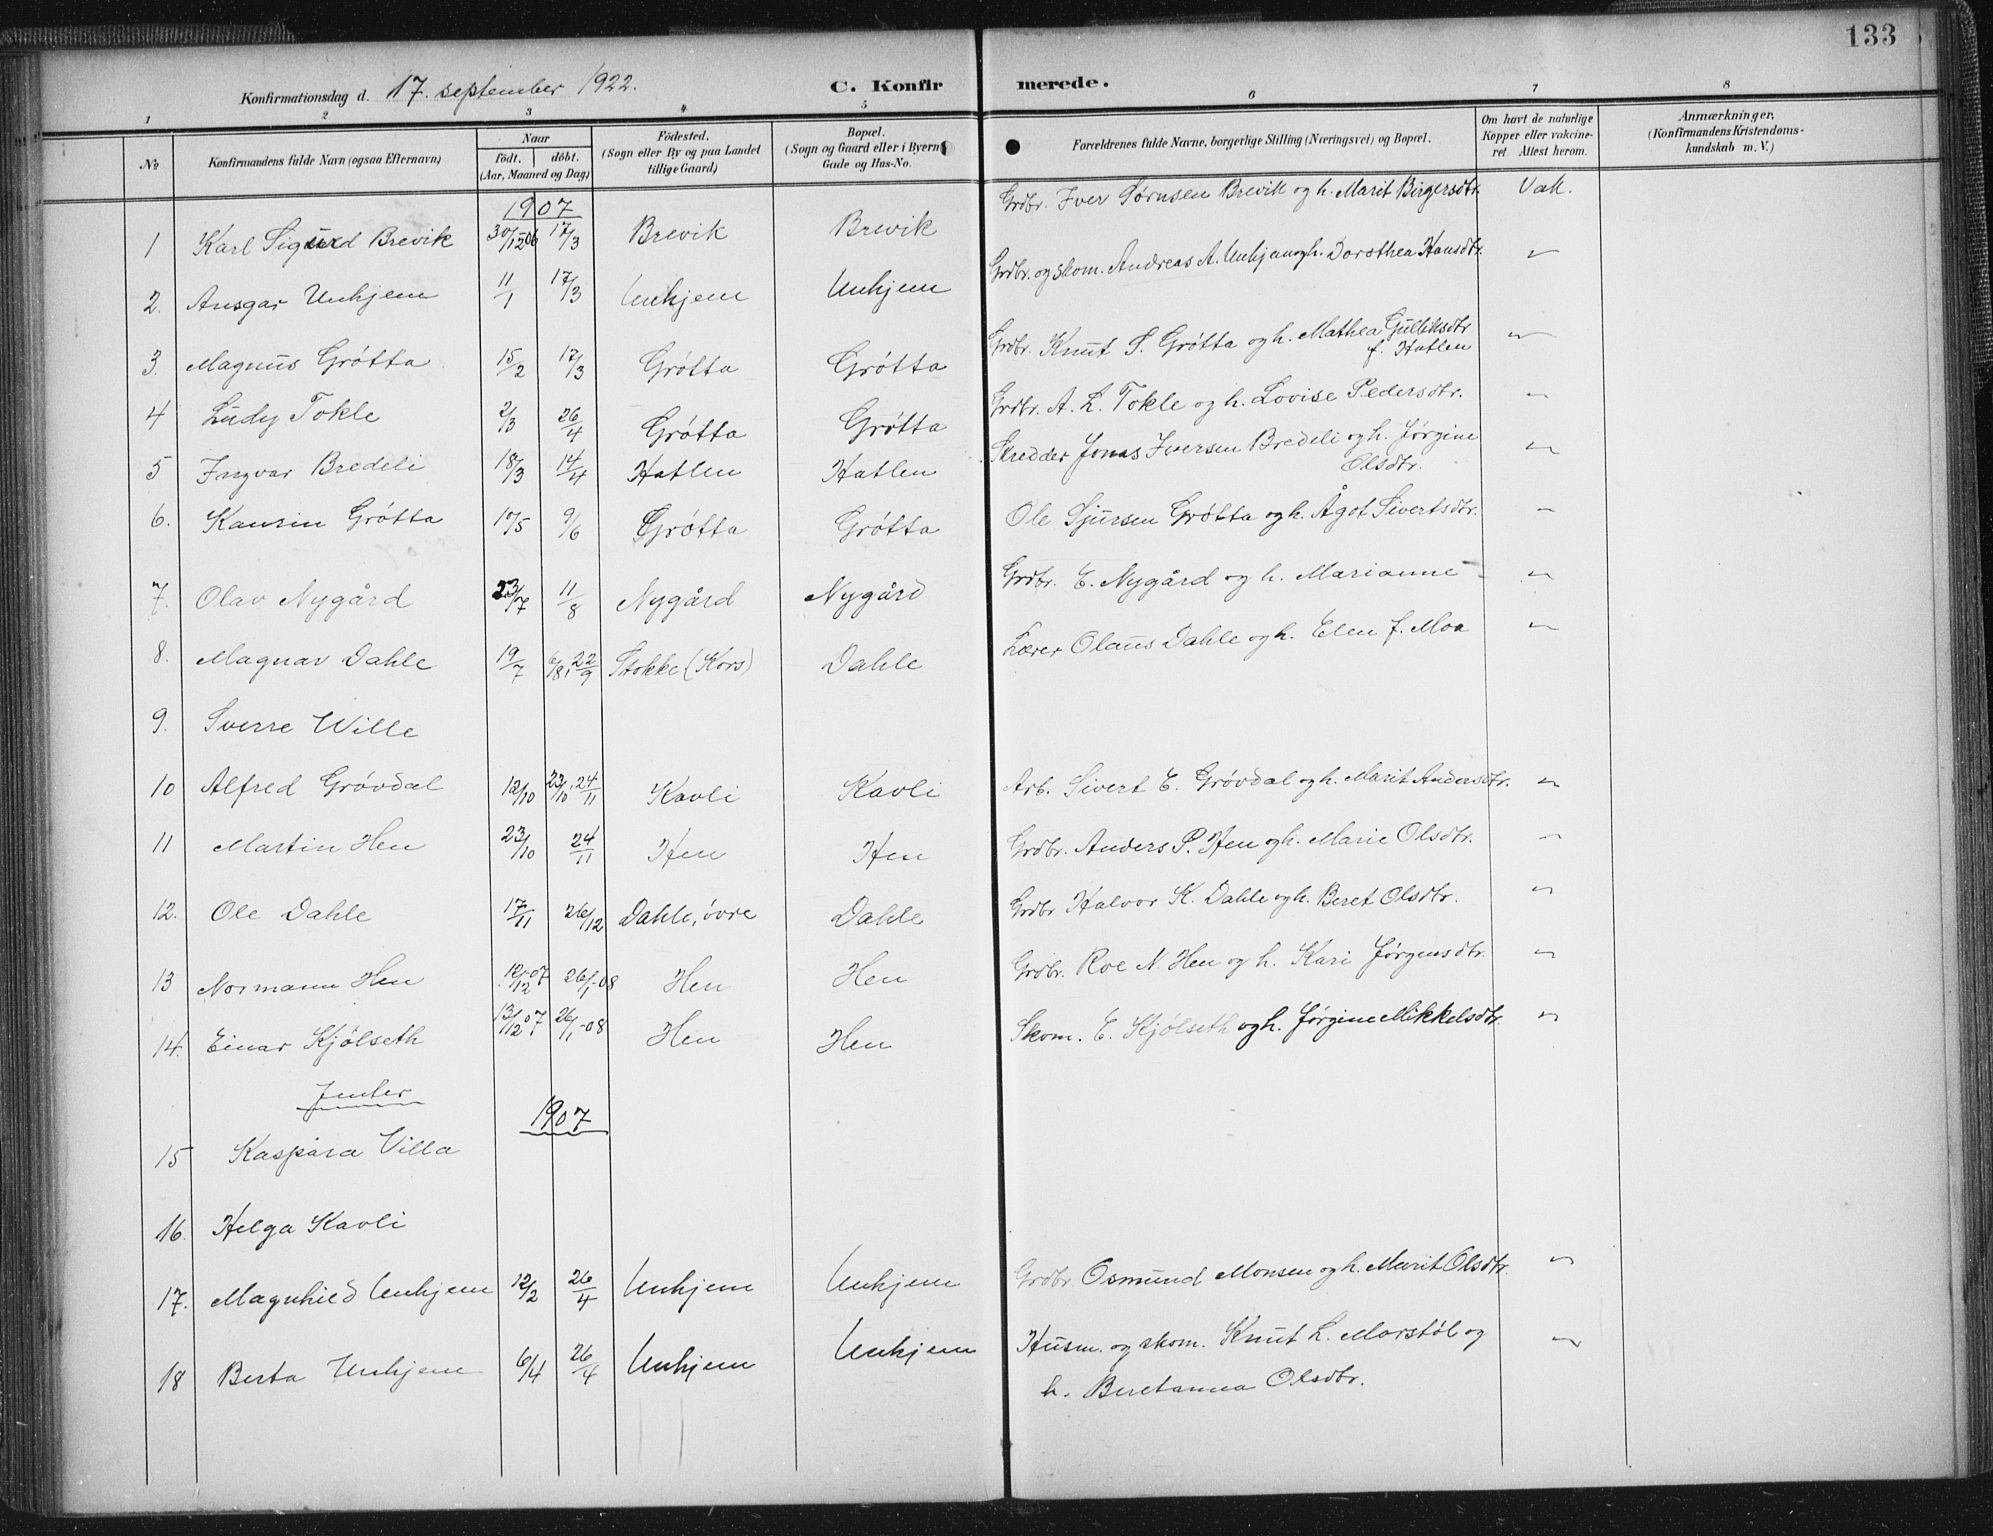 133
Konfirmationsdag d. 17. september 1922. C. Konfirmerede.
1 2 3 4 5 6 7 8
No
Konfirmandens fulde Navn (ogsaa Efternavn)
Naar
født. døbt.
(Aar, Maaned og Dag)
Fødested.
(Sogn eller By og paa Landet
tillige Gaard)
Bopæl.
(Sogn og Gaard eller i Byern
Gade og Hus-No.
Forældrenes fulde Navne, borgerlige Stilling (Næringsvei) og Bopæl.
Om havt de naturlige
Kopper eller vakcine-
ret. Attest herom.
Anmærkninger,
(Konfirmandens Kristendoms-
kundskab m. V.)
1907
1 Karl Sigurd Brevik 30/12 06 17/3 Brevik Brevik Grdbr. Iver Sørnsen Brevik og h. Marit Birgersdtr. Vak.
2. Ansgar Unhjem 11/1 17/3 Unhjem Unhjem Grdbr. og skom. Andreas A. Unhjem og h. Dorothea Hansdtr. "
3. Magnus Grøtta 15/2 17/3 Grøtta Grøtta Grdbr. Knut S. Grøtta og h. Mathea Gulliksdtr
f. Hatlen "
4 Ludy Tokle 2/3 26/4 Grøtta Grøtta Grdbr. A. L. Tokle og h. Lovise Pedersdtr. "
5 Ingvar Bredeli 18/3 14/4 Hatlen Hatlen Skredder Jonas Iversen Bredeli og h. Jørgine
Olsdtr. "
6. Kansin Grøtta 10/5 9/6 Grøtta Grøtta Ole Sjursen Grøtta og h. Ågot Sivertsdtr. "
7. Olav Nygård 23/7 11/8 Nygård Nygård Grdbr. E. Nygård og h. Marianne "
8. Magnar Dahle 19/7 6/8, 22/9 Stokke (Kors) Dahle Lærer Olaus Dahle og h. Elen f. Moa "
9. Sverre Wille
10 Alfred Grøvdal 12/10 23/10, 24/11 Kavli Kavli Arb. Sivert E. Grøvdal og h. Marit Andersdtr. "
11 Martin Hen 23/10 24/11 Hen Hen Grdbr. Anders P. Hen og h. Marie Olsdtr. "
12. Ole Dahle 17/11 26/12 Dahle, øvre Dahle Grdbr Halvor K. Dahle og h. Beret Olsdtr. "
13 Normann Hen 12/12-07 26/1-08 Hen Hen Grdbr. Roe N. Hen og h. Kari Jørgensdtr. "
14. Einar Kjølseth 13/12 07 26/1-08 Hen Hen Skom. E. Kjølseth og h. Jørgine Mikkelsdtr. "
Jenter
1907
15 Kaspara Villa
16. Helga Kavli
17. Magnhild Unhjem 12/2 26/4 Unhjem Unhjem Grdbr. Osmund Monsen og h. Marit Olsdtr. "
18 Berta Unhjem 6/4 26/4 Unhjem Unhjem Husm. og skom. Knut L. Marstøl og
h. Beretanna Olsdtr. "